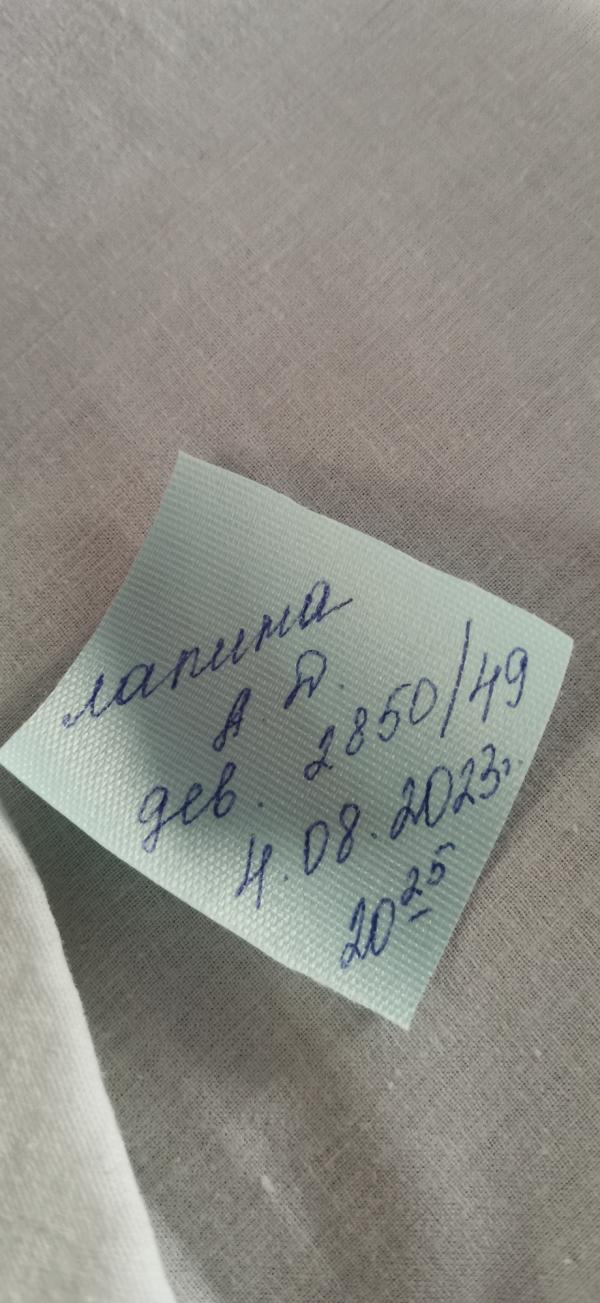 лапина
А. Д.
дев. 2850/49
4.08.2023г.
20 25